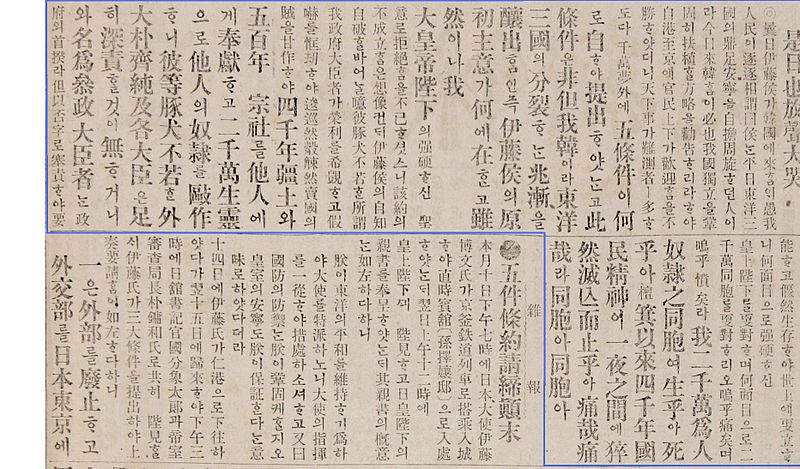 是日也放聲大哭
◎曩日伊藤侯가韓國에來ᄒᆞᆷ이愚我
人民이逐逐相謂曰侯ᄂᆞᆫ平日東洋三
國의鼎足安寧을自擔周旋ᄒᆞ던人이
라今日來韓ᄒᆞᆷ이必也我國獨立을鞏
固히扶植ᄒᆞᆯ方略을勸告ᄒᆞ리라ᄒᆞ야
自港至京에官民上下가歡迎ᄒᆞᆷ을不
勝ᄒᆞ얏더니天下事가難測者ㅣ多ᄒᆞ
도다千萬夢外에五條件이何
로自ᄒᆞ야提出ᄒᆞ얏ᄂᆞᆫ고此
條件은非但我韓이라東洋
三國의分裂ᄒᆞᄂᆞᆫ兆漸을
釀出ᄒᆞᆷ인즉伊藤侯의原
初主意가何에在ᄒᆞᆫ고雖
然이나我
大皇帝陛下의强硬ᄒᆞ신 聖
意로拒絕ᄒᆞᆷ을不已ᄒᆞ셧스니該約의
不成立ᄒᆞᆷ은想像컨ᄃᆡ伊藤侯의自知
自破ᄒᆞᆯ바어ᄂᆞᆯ噫彼豚犬不若ᄒᆞᆫ所謂
我政府大臣者가榮利를希覬ᄒᆞ고假
嚇를恇劫ᄒᆞ야逡巡然觳觫然賣國의
賊을甘作ᄒᆞ야四千年疆土와
五百年 宗社를他人에
게奉獻ᄒᆞ고二千萬生靈
으로他人의奴隸를敺作
ᄒᆞ니彼等豚犬不若ᄒᆞᆫ外
大朴齊純及各大臣은足
히深責ᄒᆞᆯ것이無ᄒᆞ거니
와名爲參政大臣者ᄂᆞᆫ政
府의首揆라但以否字로塞責ᄒᆞ야要
能ᄒᆞ고偃然生存ᄒᆞ야世上에更立ᄒᆞ
니何面目으로强硬ᄒᆞ신
皇上陛下를更對ᄒᆞ며何面目으로二
千萬同胞를更對ᄒᆞ리오嗚乎痛矣며
嗚乎憤矣라我二千萬爲人
奴隸之同胞여生乎아死
乎아檀箕以來四千年國
民精神이一夜之間에猝
然滅亡而止乎아痛哉痛
哉라同胞아同胞아
雜報
●五件條約請締顚末
本月十日下午七時에日本大使伊藤
博文氏가京釜鐵道列車로搭乘入城
ᄒᆞ야直時賓舘(孫擇孃邸)으로入處
ᄒᆞ얏ᄂᆞᆫᄃᆡ翌日上午十二時에
皇上陛下ᄭᅴ 陛見ᄒᆞ고日皇陛下의
親書를奉呈ᄒᆞ얏ᄂᆞᆫᄃᆡ其親書의槪意
ᄂᆞᆫ如左ᄒᆞ다ᄒᆞ니
朕이東洋의平和를維持ᄒᆞ기爲ᄒᆞ
야大使를特派ᄒᆞ노니大使의指揮
를一從ᄒᆞ야措處ᄒᆞ소셔ᄒᆞ고又曰
國防의防禦ᄂᆞᆫ朕이鞏固케ᄒᆞᆯ지오
皇室의安寧도朕이保証ᄒᆞᆫ다ᄂᆞᆫ意
味로ᄒᆞ얏다더라
十四日에伊藤氏가仁港으로下往ᄒᆞ
얏다가翌十五日에歸來ᄒᆞ야下午三
時에日舘書記官國分象太郞과帝室
審査局長朴鏞和氏로共히 陛見ᄒᆞᆯᄉᆡ
伊藤氏가三大條件을提出ᄒᆞ야上
奏要請ᄒᆞᆷ이如左ᄒᆞ다ᄒᆞ니
一은外部를廢止ᄒᆞ고
外交部를日本東京에